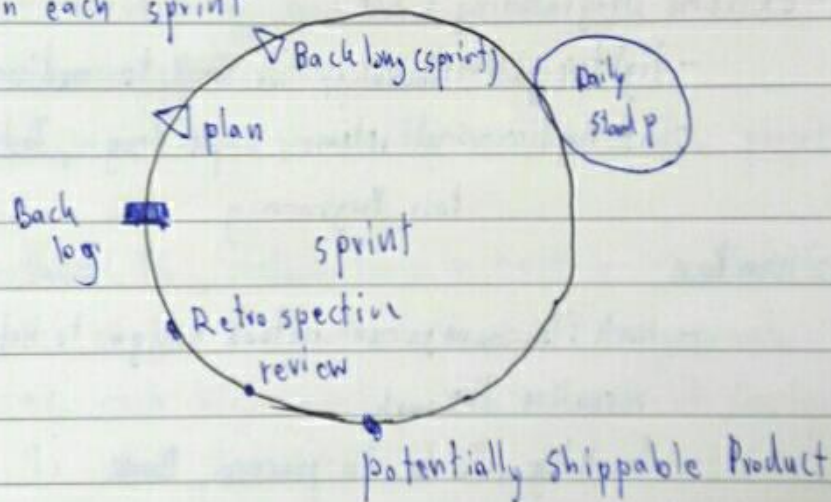 n each sprint
Back long (sprint)
Daily
Stand p
plan
Back
log
sprint
Retrospective
review
potentially shippable Product